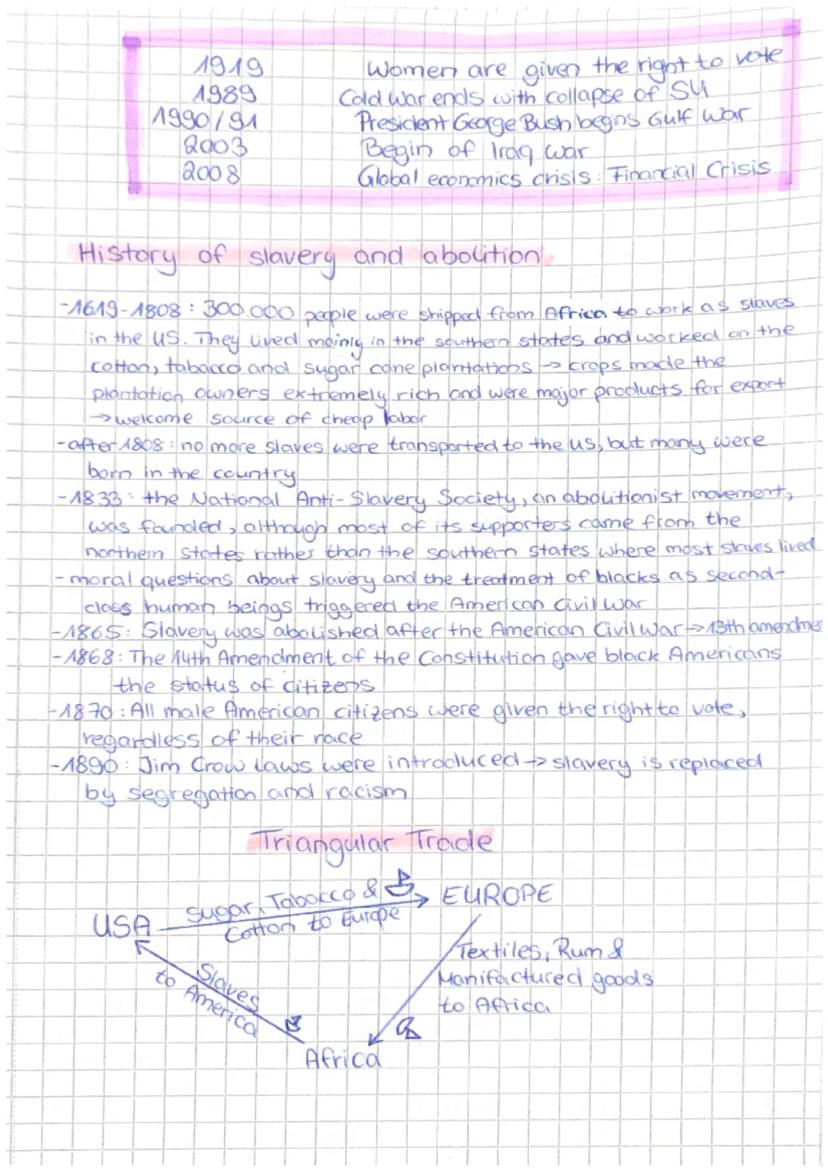 1919 Women are given the right to vote
1989 Cold war ends with collapse of SU
1990/91 President George Bush begins Gulf War
2003 Begin of Iraq war
2008 Global economics crisis: Financial Crisis
History of slavery and abolition
-1619-1808: 300.000 people were shipped from Africa to work as slaves
in the US. They lived mainly in the southern states and worked on the
cotton, tabacco and sugar cane plantations → crops made the
plantation owners extremely rich and were major products for export
→ welcome source of cheap labor
-after 1808: no more slaves were transported to the US, but many were
born in the country
-1833: the National Anti-Slavery Society, an abolitionist movement,
was founded, although most of its supporters came from the
northern states rather than the southern states where most slaves lived
- moral questions about slavery and the treatment of blacks as second-
class human beings triggered the American Civil War
-1865: Slavery was abolished after the American Civil War → 13th amendme
-1868: The 14th Amendment of the Constitution gave black Americans
the status of citizens
-1870: All male American citizens were given the right to vote,
regardless of their race
-1890: Jim Crow Laws were introduced → slavery is replaced
by segregation and racism
Triangular Trade
USA Sugar, Tabacco & EUROPE
Cotton to Europe
Textiles, Rum &
Manifactured goods
to Africa
Slaves
to America
Africa